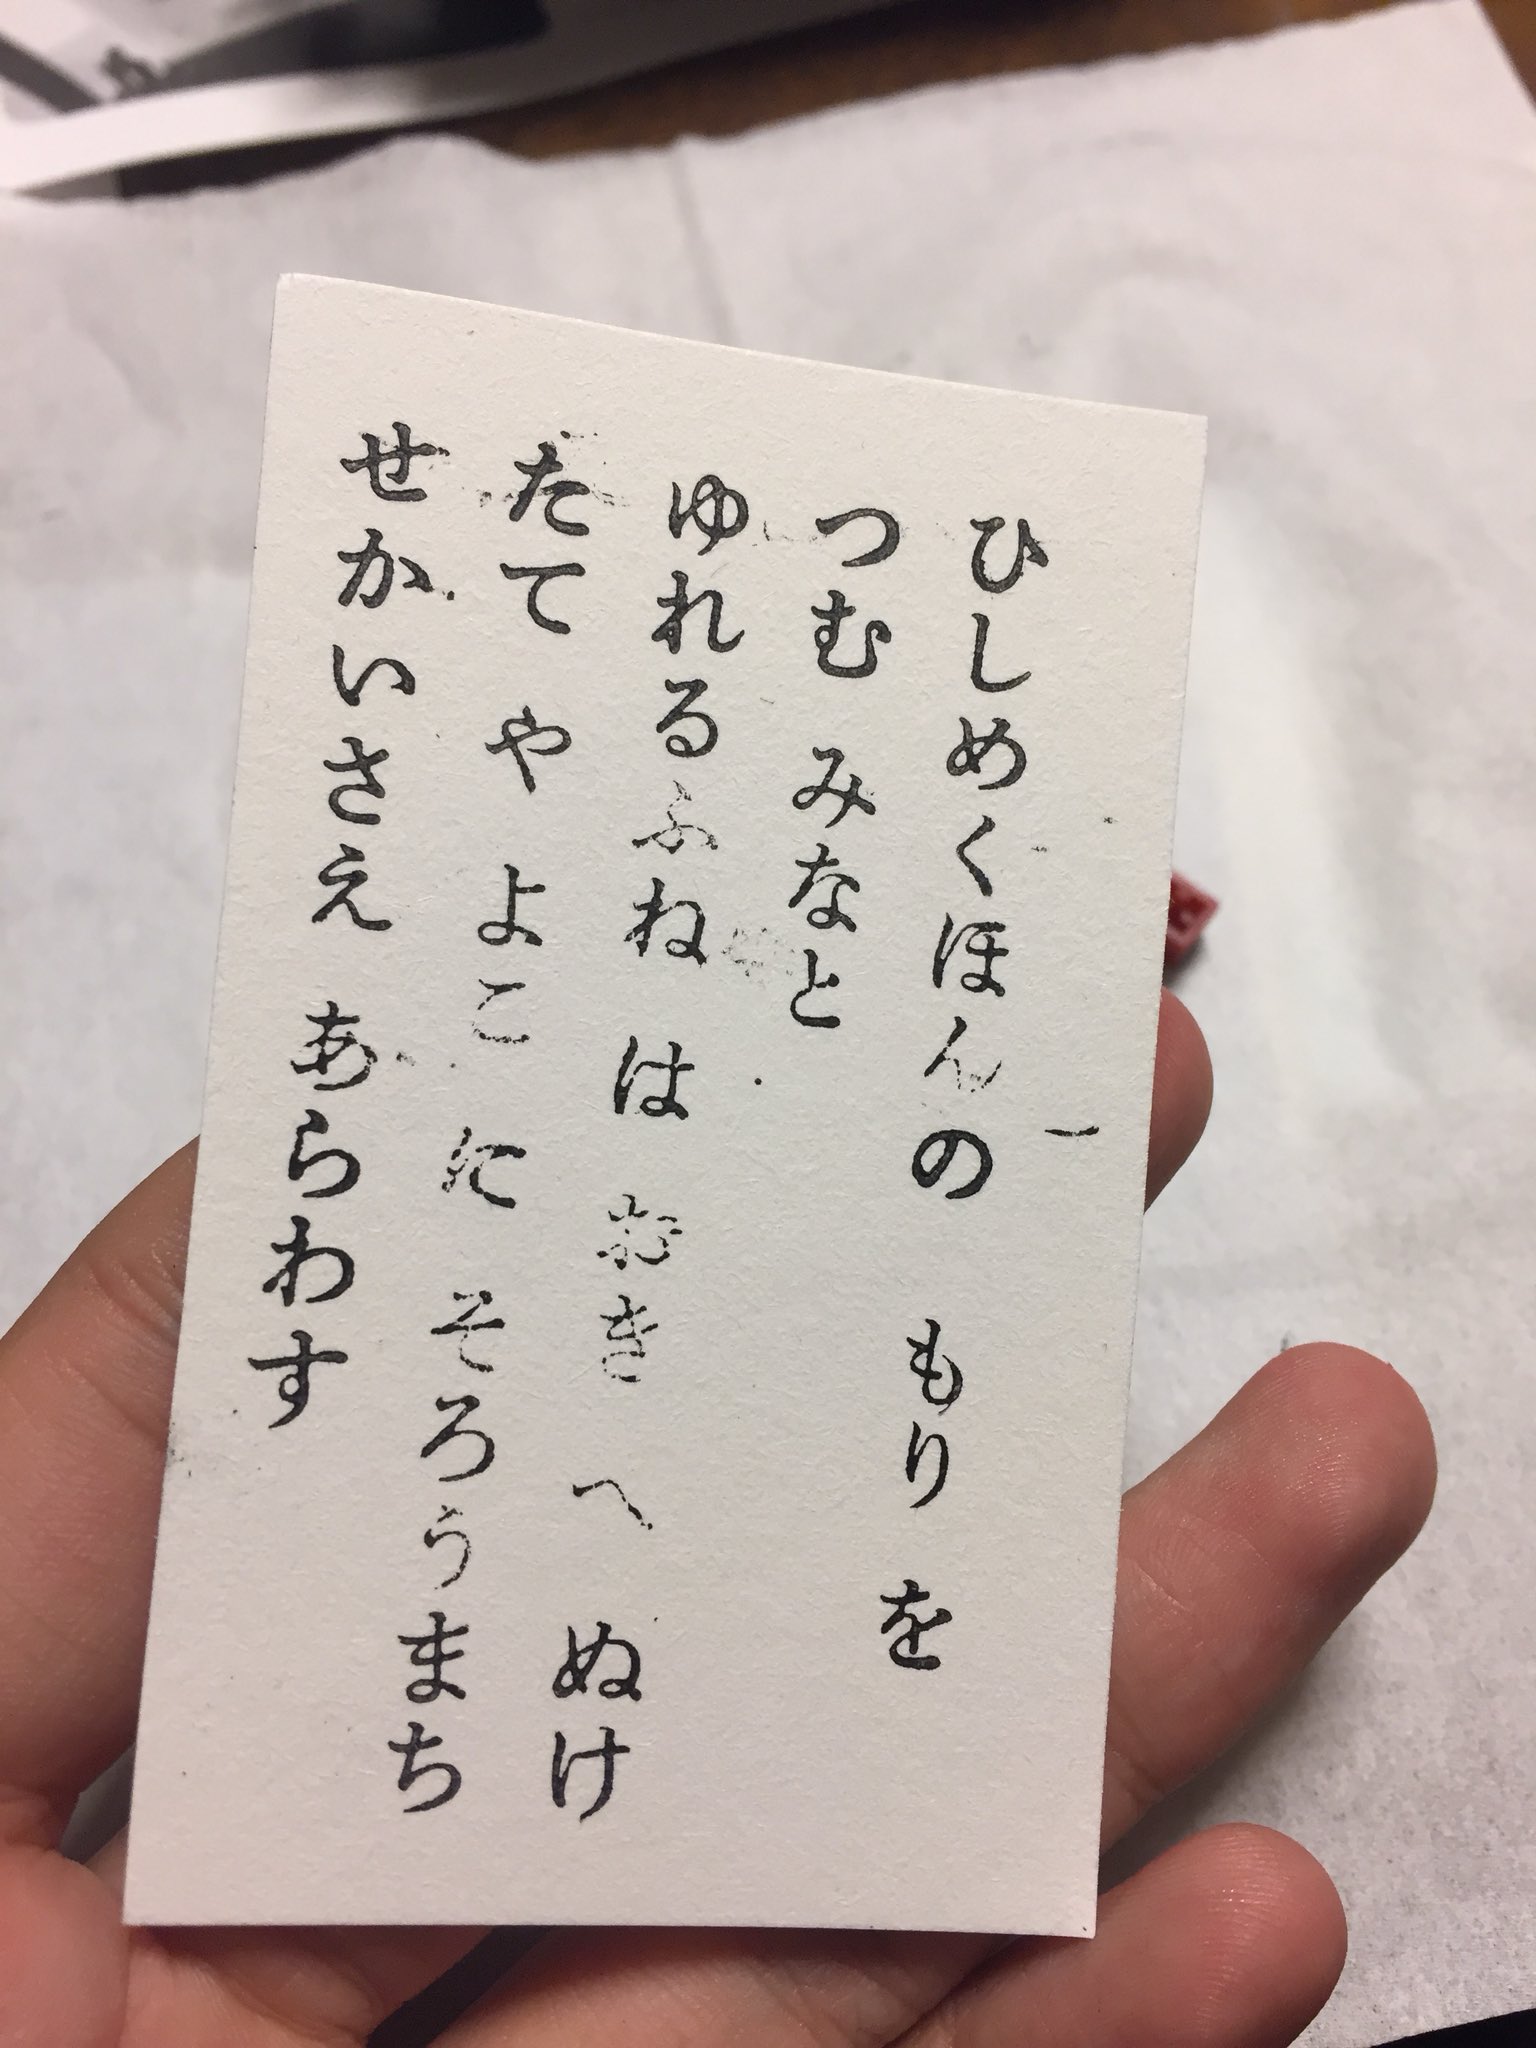 ひしめくほんの もり を
つむ みなと
ゆれるふね は おき へ ぬけ
たて や よこ に そろうまち
せかいさえ あらわす